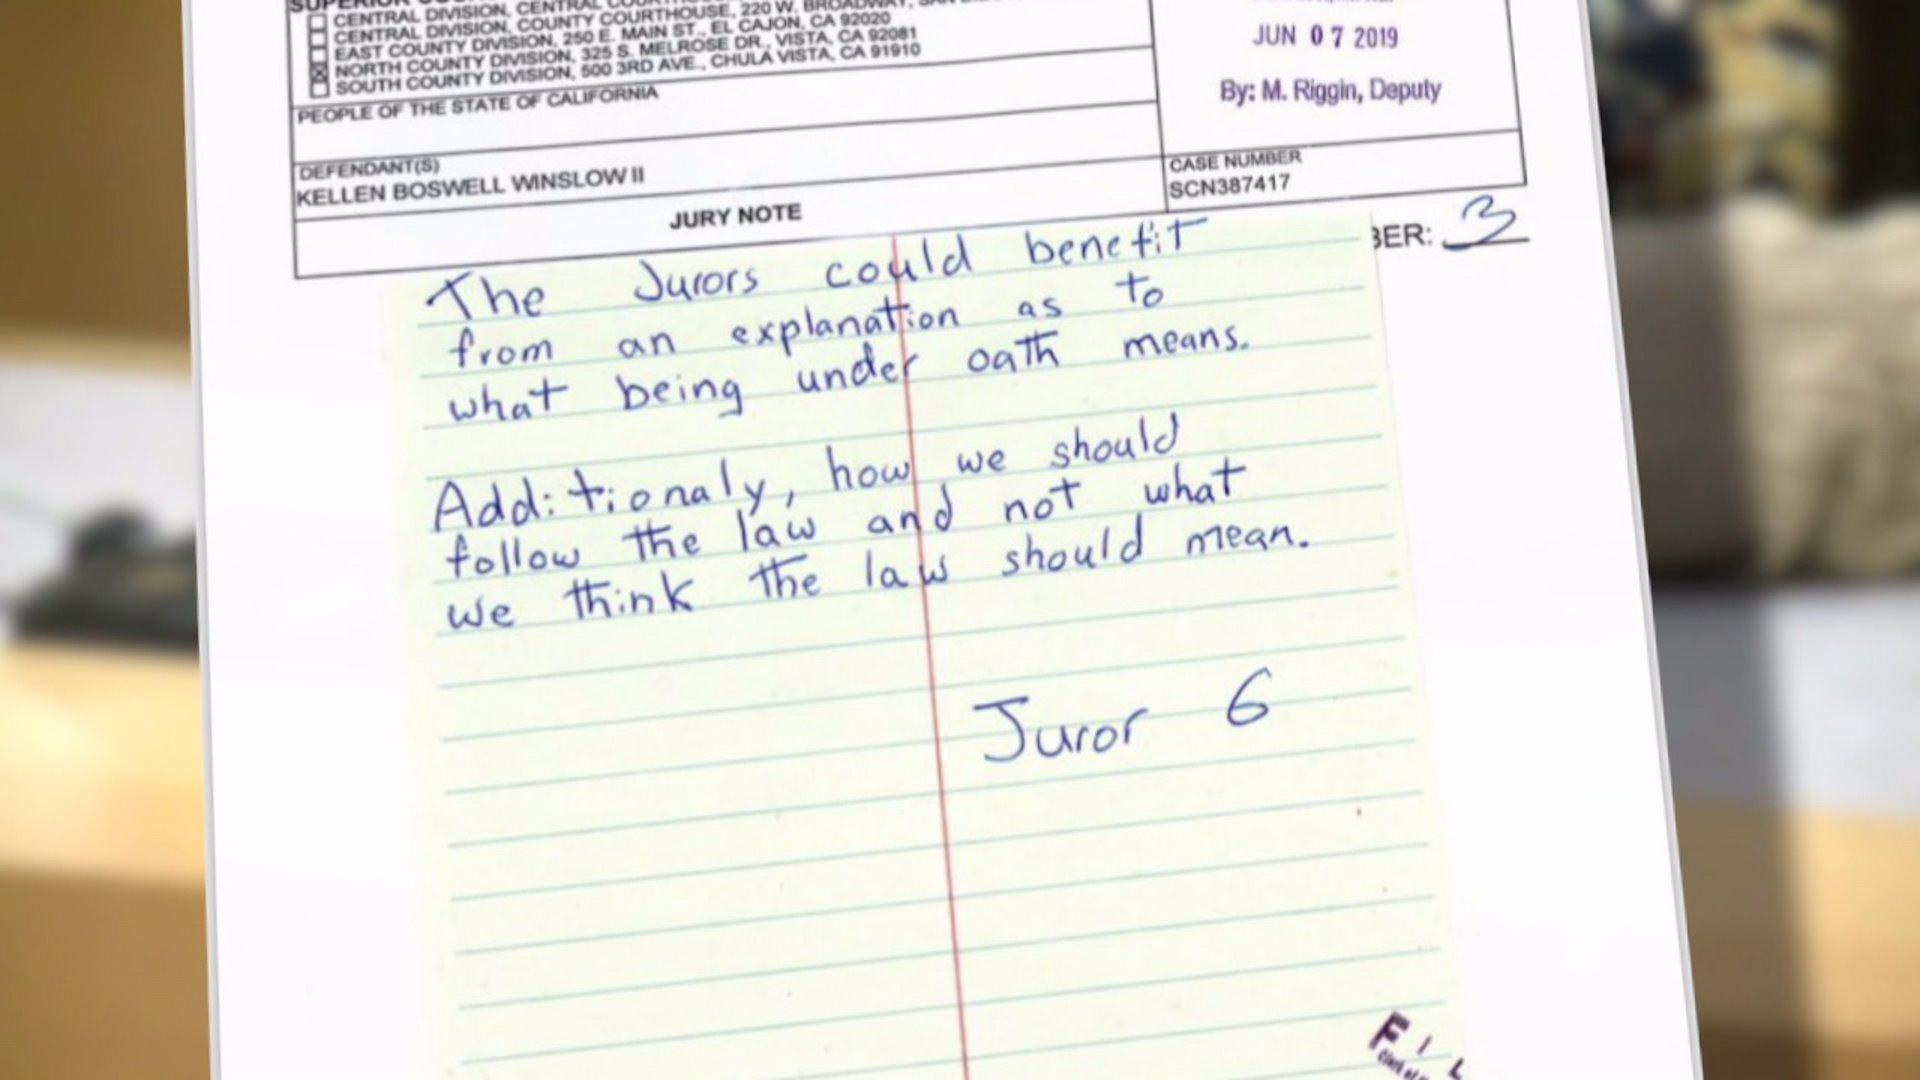 SUPERIOR
CENTRAL DIVISION, CENTRAL
CENTRAL DIVISION, COUNTY COURTHOUSE, 220 W. BROADWAY,
EAST COUNTY DIVISION, 250 E. MAIN ST., EL CAJON, CA 92020
NORTH COUNTY DIVISION, 325 S. MELROSE DR., VISTA, CA 92081
SOUTH COUNTY DIVISION, 500 3RD AVE., CHULA VISTA, CA 91910
JUN 07 2019
By: M. Riggin, Deputy
PEOPLE OF THE STATE OF CALIFORNIA
DEFENDANT(S)
KELLEN BOSWELL WINSLOW II
CASE NUMBER
SCN387417
JURY NOTE
BER: 3
The Jurors could benefit
from an explanation as to
what being under oath means.
Additionaly, how we should
follow the law and not what
we think the law should mean.
Juror 6
F I L